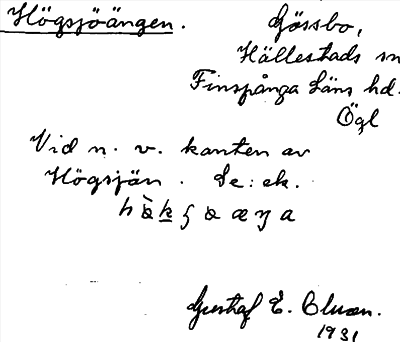 Högsjöängen.
Gössbo,
Hällestads sn
Finspånga Läns hd.
Ögl
Vid n. v. kanten av
Högsjön. Se: ek.
Gustaf E. Clusen.
1931